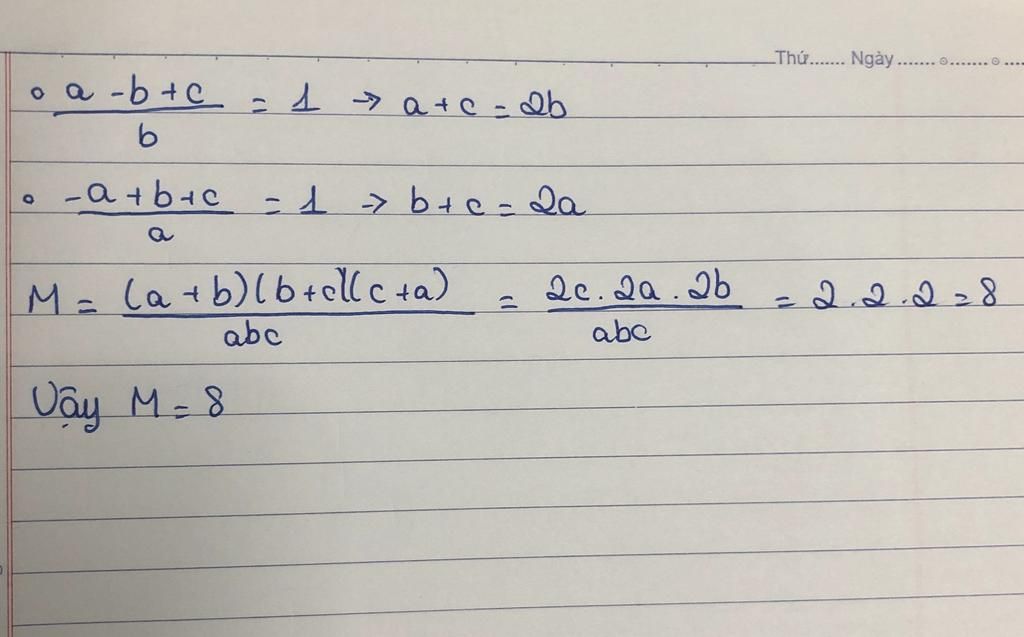 Thứ....... Ngày .......
∘ (a - b + c)/b = 1 → a + c = 2b
∘ (-a + b + c)/a = 1 → b + c = 2a
M = (a + b)(b + c)(c + a)/abc = 2c . 2a . 2b/abc = 2 . 2 . 2 = 8
Vậy M = 8